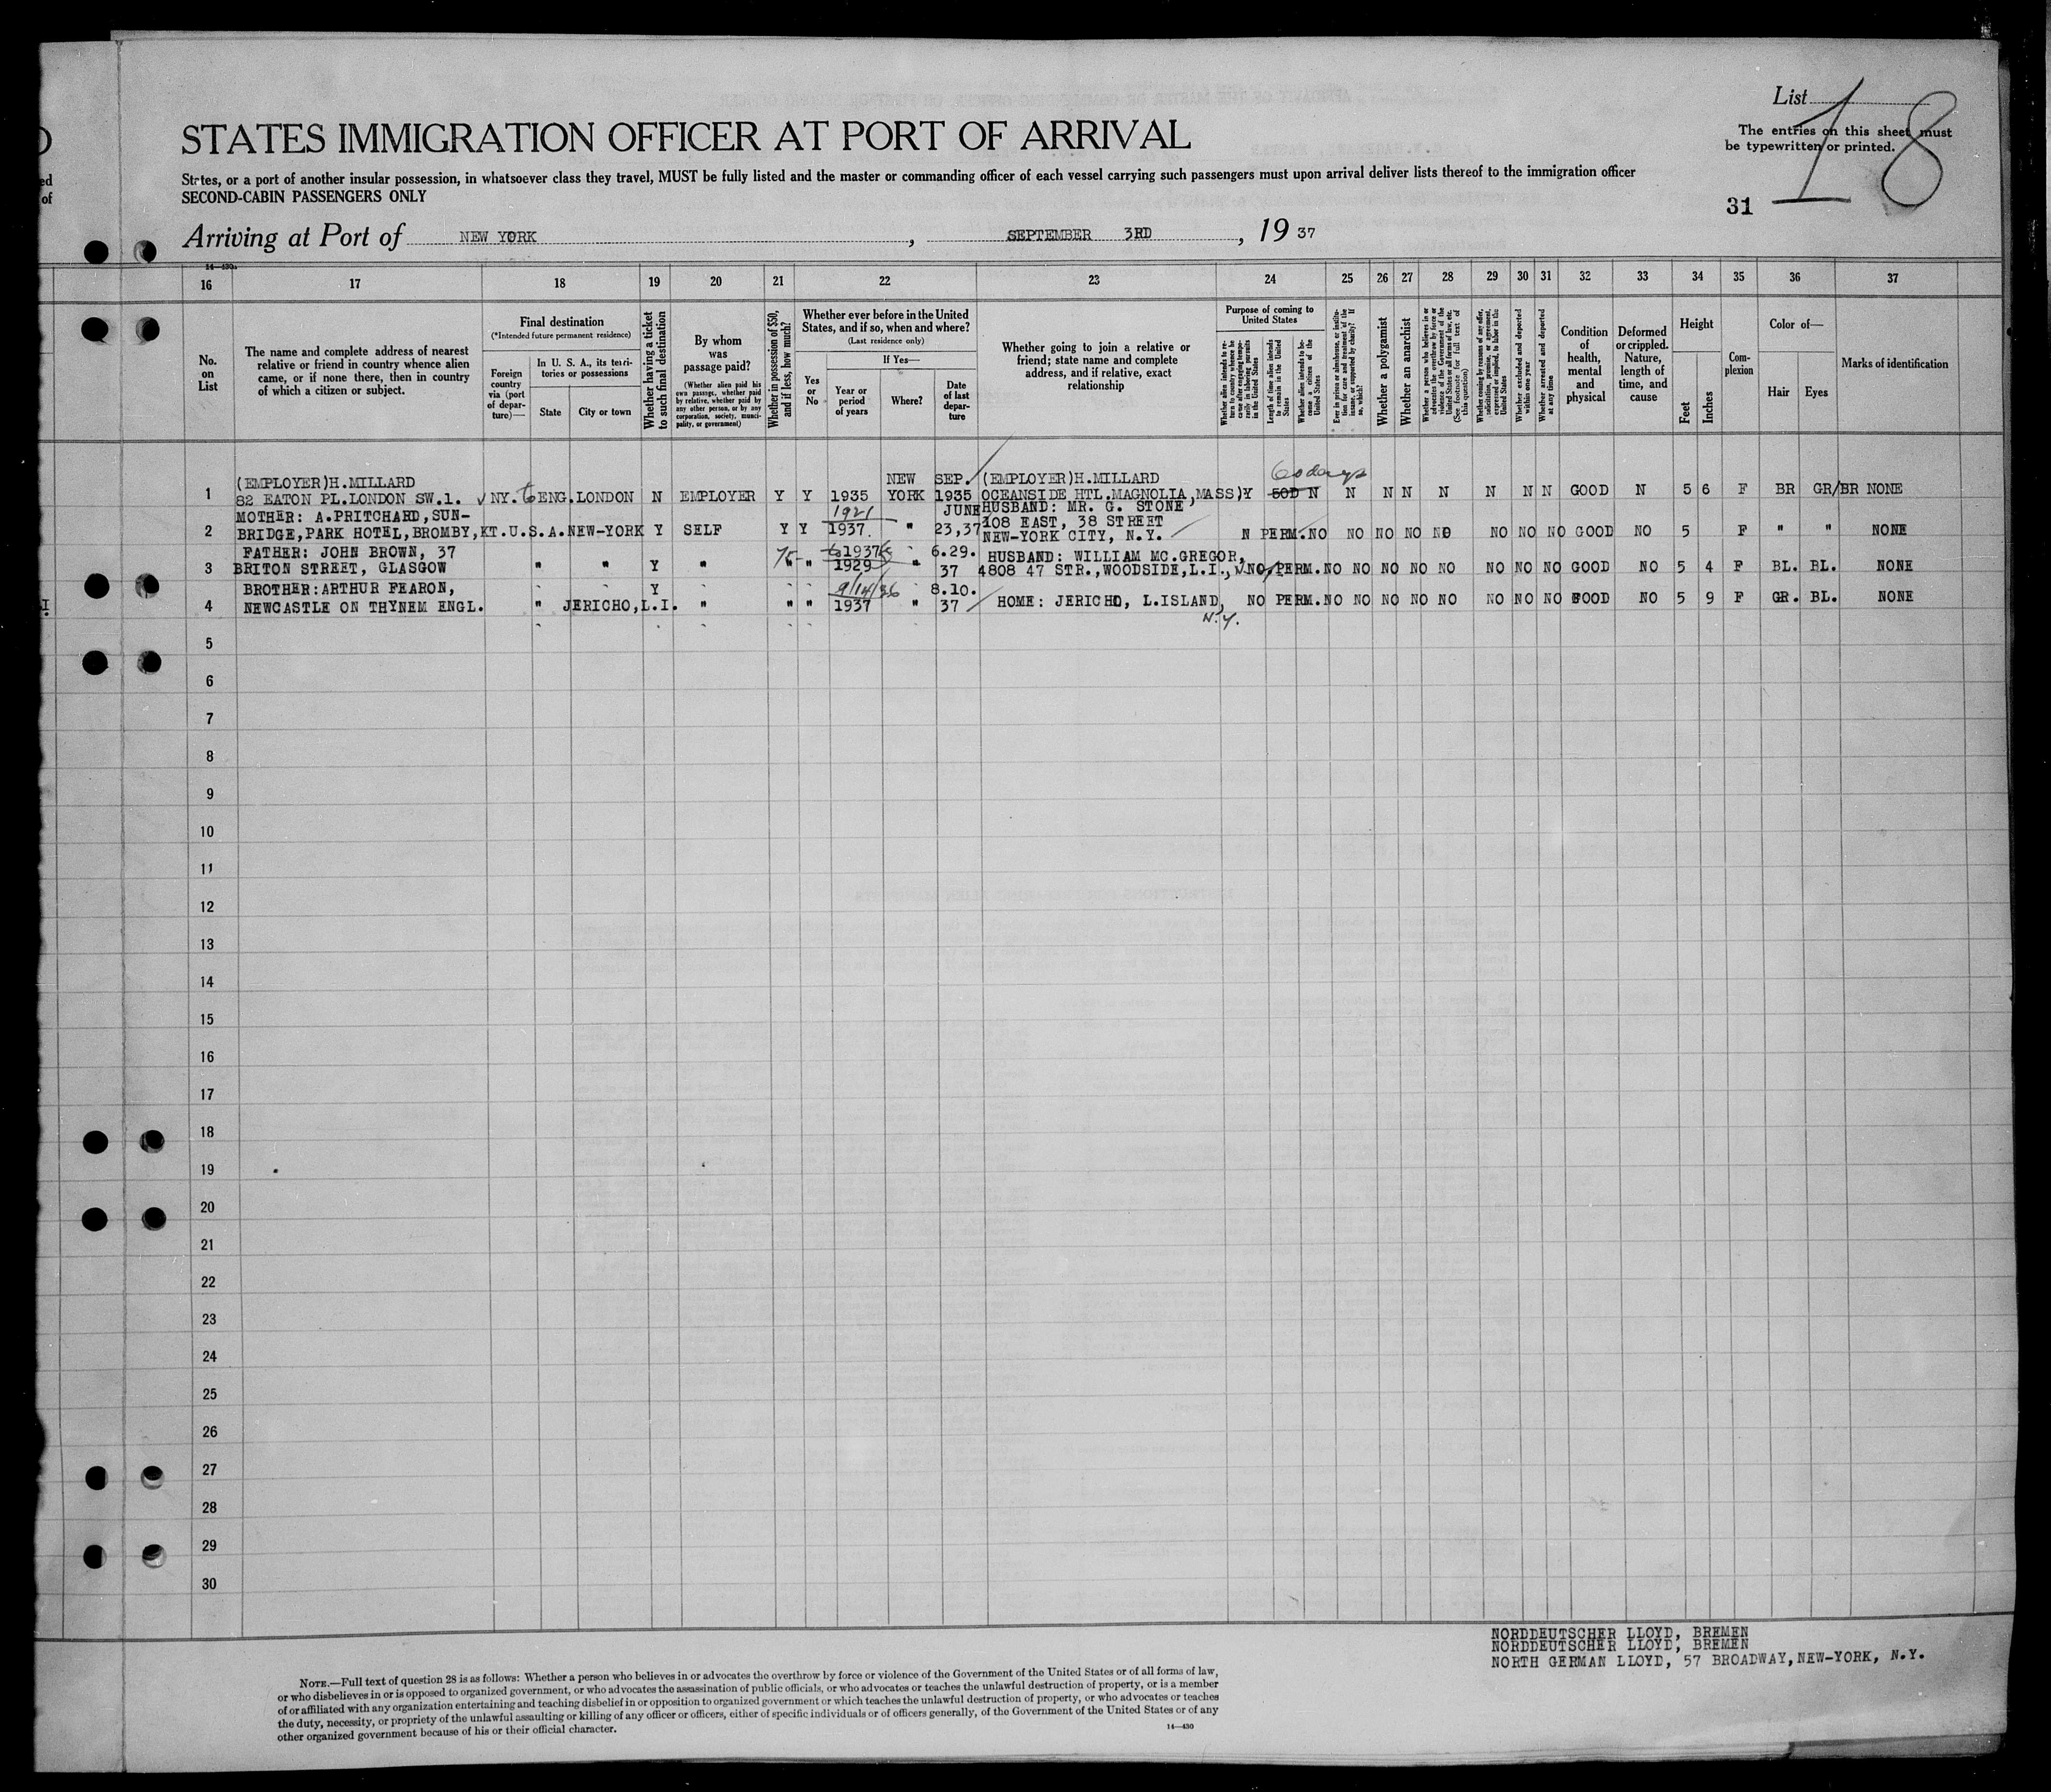 List 18
STATES IMMIGRATION OFFICER AT PORT OF ARRIVAL
The entries on this sheet must
be typewritten or printed.
States, or a port of another insular possession, in whatsoever class they travel, MUST be fully listed and the master or commanding officer of each vessel carrying such passengers must upon arrival deliver lists thereof to the immigration officer
SECOND-CABIN PASSENGERS ONLY
31
Arriving at Port of NEW YORK, SEPTEMBER 3RD, 19 37
ed
of
14—430
16 17 18 19 20 21 22 23 24 25 26 27 28 29 30 31 32 33 34 35 36 37
No. on List
The name and complete address of nearest relative or friend in country whence alien came, or if none there, then in country of which a citizen or subject.
Final destination
(*Intended future permanent residence)
Foreign country via (port of departure)—
In U. S. A., its territories or possessions
State
City or town
Whether having a ticket to such final destination
By whom was passage paid?
(Whether alien paid his own passage, whether paid by relative, whether paid by any other person, or by any corporation, society, municipality, or government)
Whether in possession of $50, and if less, how much?
Whether ever before in the United States, and if so, when and where?
(Last residence only)
Yes or No
If Yes—
Year or period of years
Where?
Date of last departure
Whether going to join a relative or friend; state name and complete address, and if relative, exact relationship
Purpose of coming to United States
Whether alien intends to return to country whence he came after engaging temporarily in laboring pursuits in the United States
Length of time alien intends to remain in the United States
Whether alien intends to become a citizen of the United States
Ever in prison or almshouse, or institution for care and treatment of the insane, or supported by charity? If so, which?
Whether a polygamist
Whether an anarchist
Whether a person who believes in or advocates the overthrow by force or violence of the Government of the United States or all forms of law, etc. (See footnote for full text of this question)
Whether coming by reasons of any offer, solicitation, promise, or agreement, expressed or implied, to labor in the United States
Whether excluded and deported within one year
Whether arrested and deported at any time
Condition of health, mental and physical
Deformed or crippled. Nature, length of time, and cause
Height
Feet
Inches
Complexion
Color of—
Hair
Eyes
Marks of identification
(EMPLOYER)H.MILLARD NEW SEP. (EMPLOYER)H.MILLARD 60 days
1 82 EATON PL.LONDON SW.1. NY. to ENG. LONDON N EMPLOYER Y Y 1935 YORK 1935 OCEANSIDE HTL.MAGNOLIA,MASS)Y 50D N N N N N N N N GOOD N 5 6 F BR GR/BR NONE
MOTHER: A.PRITCHARD,SUN- 1921 JUNE HUSBAND: MR. G. STONE
2 BRIDGE,PARK HOTEL,BROMBY,KT. U.S.A. NEW-YORK Y SELF Y Y 1937. " 23,37 108 EAST, 38 STREET
NEW-YORK CITY, N.Y. N PERM. NO NO NO NO NO NO NO NO GOOD NO 5 F " " NONE
FATHER: JOHN BROWN, 37 75 1937 6.29. HUSBAND: WILLIAM MC.GREGOR,
3 BRITON STREET, GLASGOW " " Y " " " 1929 " 37 4808 47 STR.,WOODSIDE,L.I., NO PERM. NO NO NO NO NO NO NO NO GOOD NO 5 4 F BL. BL. NONE
BROTHER:ARTHUR FEARON, Y 9/14/36 8.10.
4 NEWCASTLE ON THYNEM ENGL. " JERICHO,L.I. " " " 1937 " 37 HOME: JERICHO, L.ISLAND, NO PERM. NO NO NO NO NO NO NO NO GOOD NO 5 9 F GR. BL. NONE
N.Y.
5
6
7
8
9
10
11
12
13
14
15
16
17
18
19
20
21
22
23
24
25
26
27
28
29
30
NORDDEUTSCHER LLOYD, BREMEN
NORDDEUTSCHER LLOYD, BREMEN
NORTH GERMAN LLOYD, 57 BROADWAY,NEW-YORK, N.Y.
NOTE.—Full text of question 28 is as follows: Whether a person who believes in or advocates the overthrow by force or violence of the Government of the United States or of all forms of law,
or who disbelieves in or is opposed to organized government, or who advocates the assassination of public officials, or who advocates or teaches the unlawful destruction of property, or is a member
of or affiliated with any organization entertaining and teaching disbelief in or opposition to organized government or which teaches the unlawful destruction of property, or who advocates or teaches
the duty, necessity, or propriety of the unlawful assaulting or killing of any officer or officers, either of specific individuals or of officers generally, of the Government of the United States or of any
other organized government because of his or their official character.
14—430